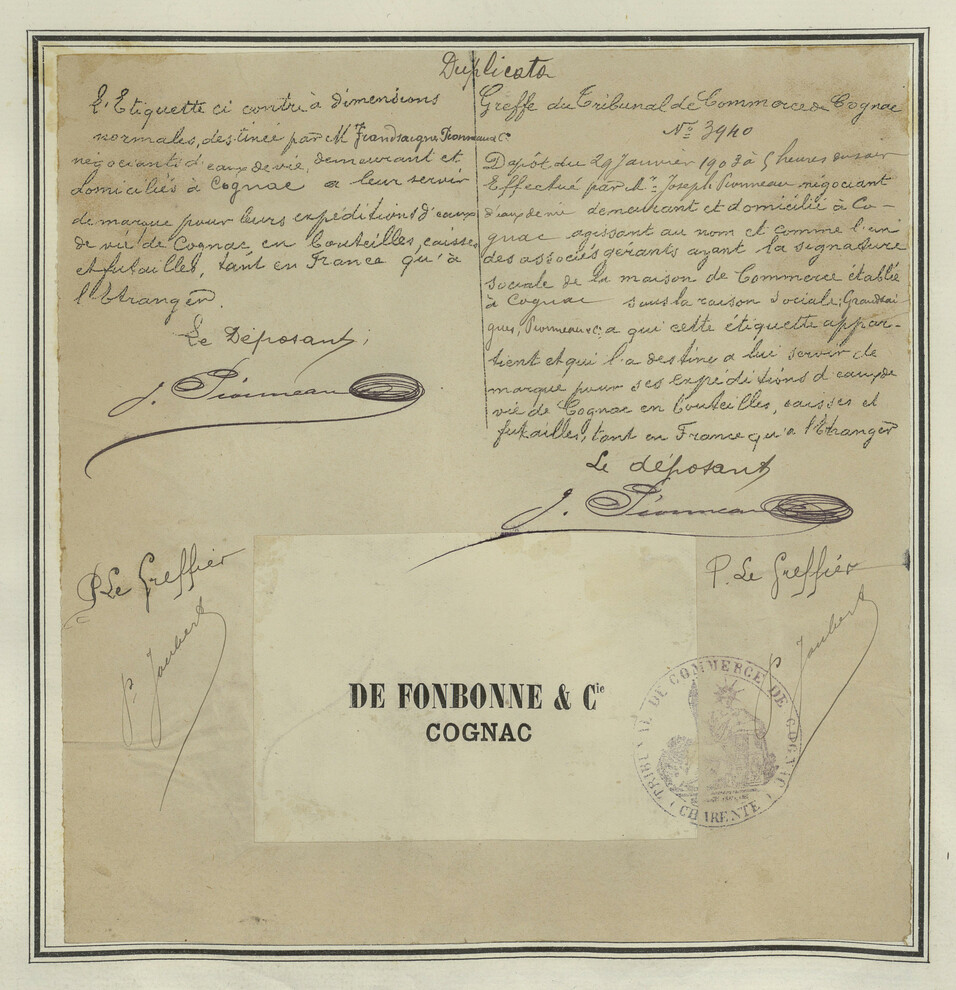 Duplicata
L'Etiquette ci contre à dimensions
normales, destinée par M Grandsaigne, Pionneau & Cº
négociants d'eaux de vie, demeurant et
domiciliés à Cognac a leur servir
de marque pour leurs expéditions d'eaux
de vie de Cognac en bouteilles, caisses
et futailles, tant en France qu'à
l'Etranger.
Le Déposant,
J. Pionneau
Greffe du Tribunal de Commerce de Cognac
Nº 3940
Dépôt du 29 Janvier 1903 à 5 heures du soir
Effectué par Mr. Joseph Pionneau négociant
d'eaux de vie demeurant et domicilié à Co-
gnac agissant au nom et comme l'un
des associés gérants ayant la signature
sociale de la maison de Commerce établie
à Cognac sous la raison sociale; Grandsai
gnes, Pionneau & C; a qui cette étiquette appar-
tient et qui l'a destine a lui servir de
marque pour ses expéditions d'eaux de
vie de Cognac en bouteilles, caisses et
futailles, tant en France qu'a l'Etranger
Le déposant
J. Pionneau
P. Le Greffier
P. Joubert
P. Le Greffier
P. Joubert
DE FONBONNE & Cie
COGNAC
TRIBUNAL DE COMMERCE DE COGNAC
(CHARENTE)